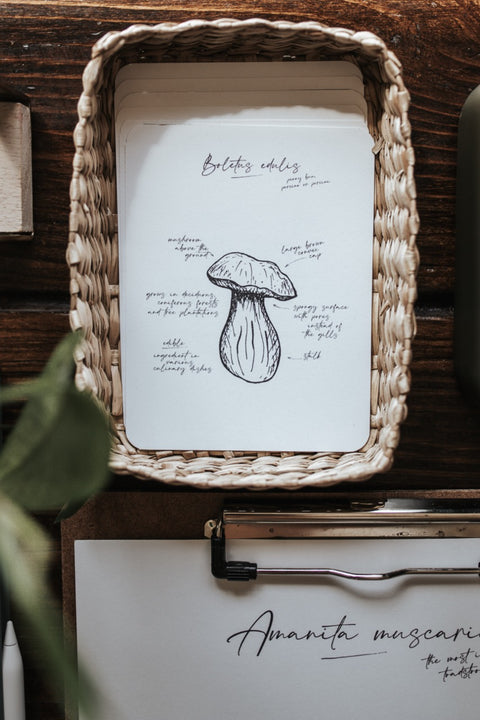 Boletus edulis
penny bun
porcino or porcini
mushroom
above the
ground
large brown
convex
cap
grows in deciduous,
coniferous forests
and tree plantations
spongy surface
with pores
instead of
the gills
edible
ingredient in
various
culinary dishes
stalk
Amanita muscari
the most i
toadsto